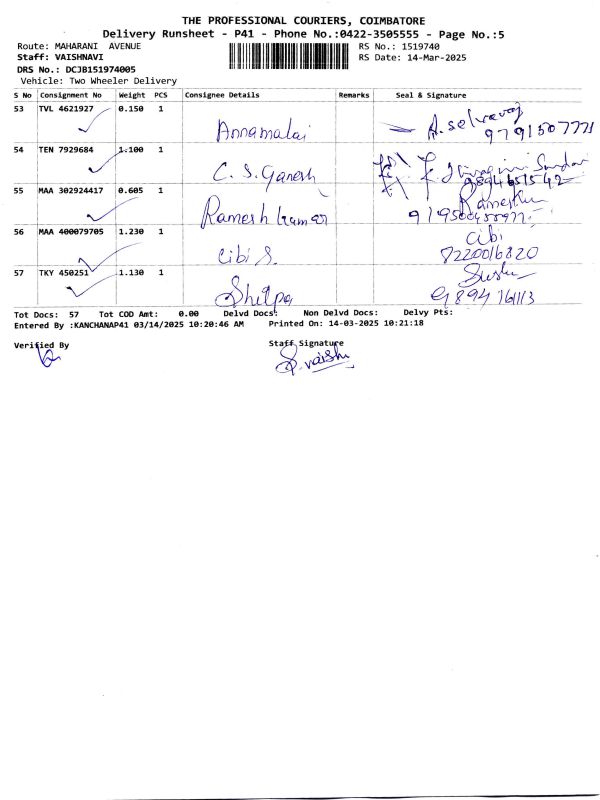 THE PROFESSIONAL COURIERS, COIMBATORE
Delivery Runsheet - P41 - Phone No.:0422-3505555 - Page No.:5
Route: MAHARANI AVENUE RS No.: 1519740
Staff: VAISHNAVI RS Date: 14-Mar-2025
DRS No.: DCJB151974005
Vehicle: Two Wheeler Delivery
S No Consignment No Weight PCS Consignee Details Remarks Seal & Signature
53 TVL 4621927 0.150 1 Annamalai A. Selvaraj
9791507771
54 TEN 7929684 1.100 1 C. S. Ganesh
55 MAA 302924417 0.605 1 Ramesh kumar
56 MAA 400079705 1.230 1 Cibi S. Cibi
7220016820
57 TKY 450251 1.130 1 Shilpa
Tot Docs: 57 Tot COD Amt: 0.00 Delvd Docs: Non Delvd Docs: Delvy Pts:
Entered By :KANCHANAP41 03/14/2025 10:20:46 AM Printed On: 14-03-2025 10:21:18
Verified By Staff Signature